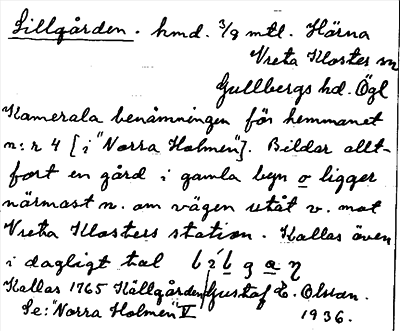 Lillgården. hmd. 3/8 mtl. Härna
Vreta Kloster sn
Gullbergs hd. Ögl
Kamerala benämningen för hemmanet
n:r 4 [i "Norra Holmen"]. Bildar allt-
fort en gård i gamla byn o ligger
närmast n. om vägen utåt v. mot
Vreta Klosters station. Kallas även
i dagligt tal
Kallas 1765 Källgården Gustaf E. Olsson.
Se: "Norra Holmen" V 1936.